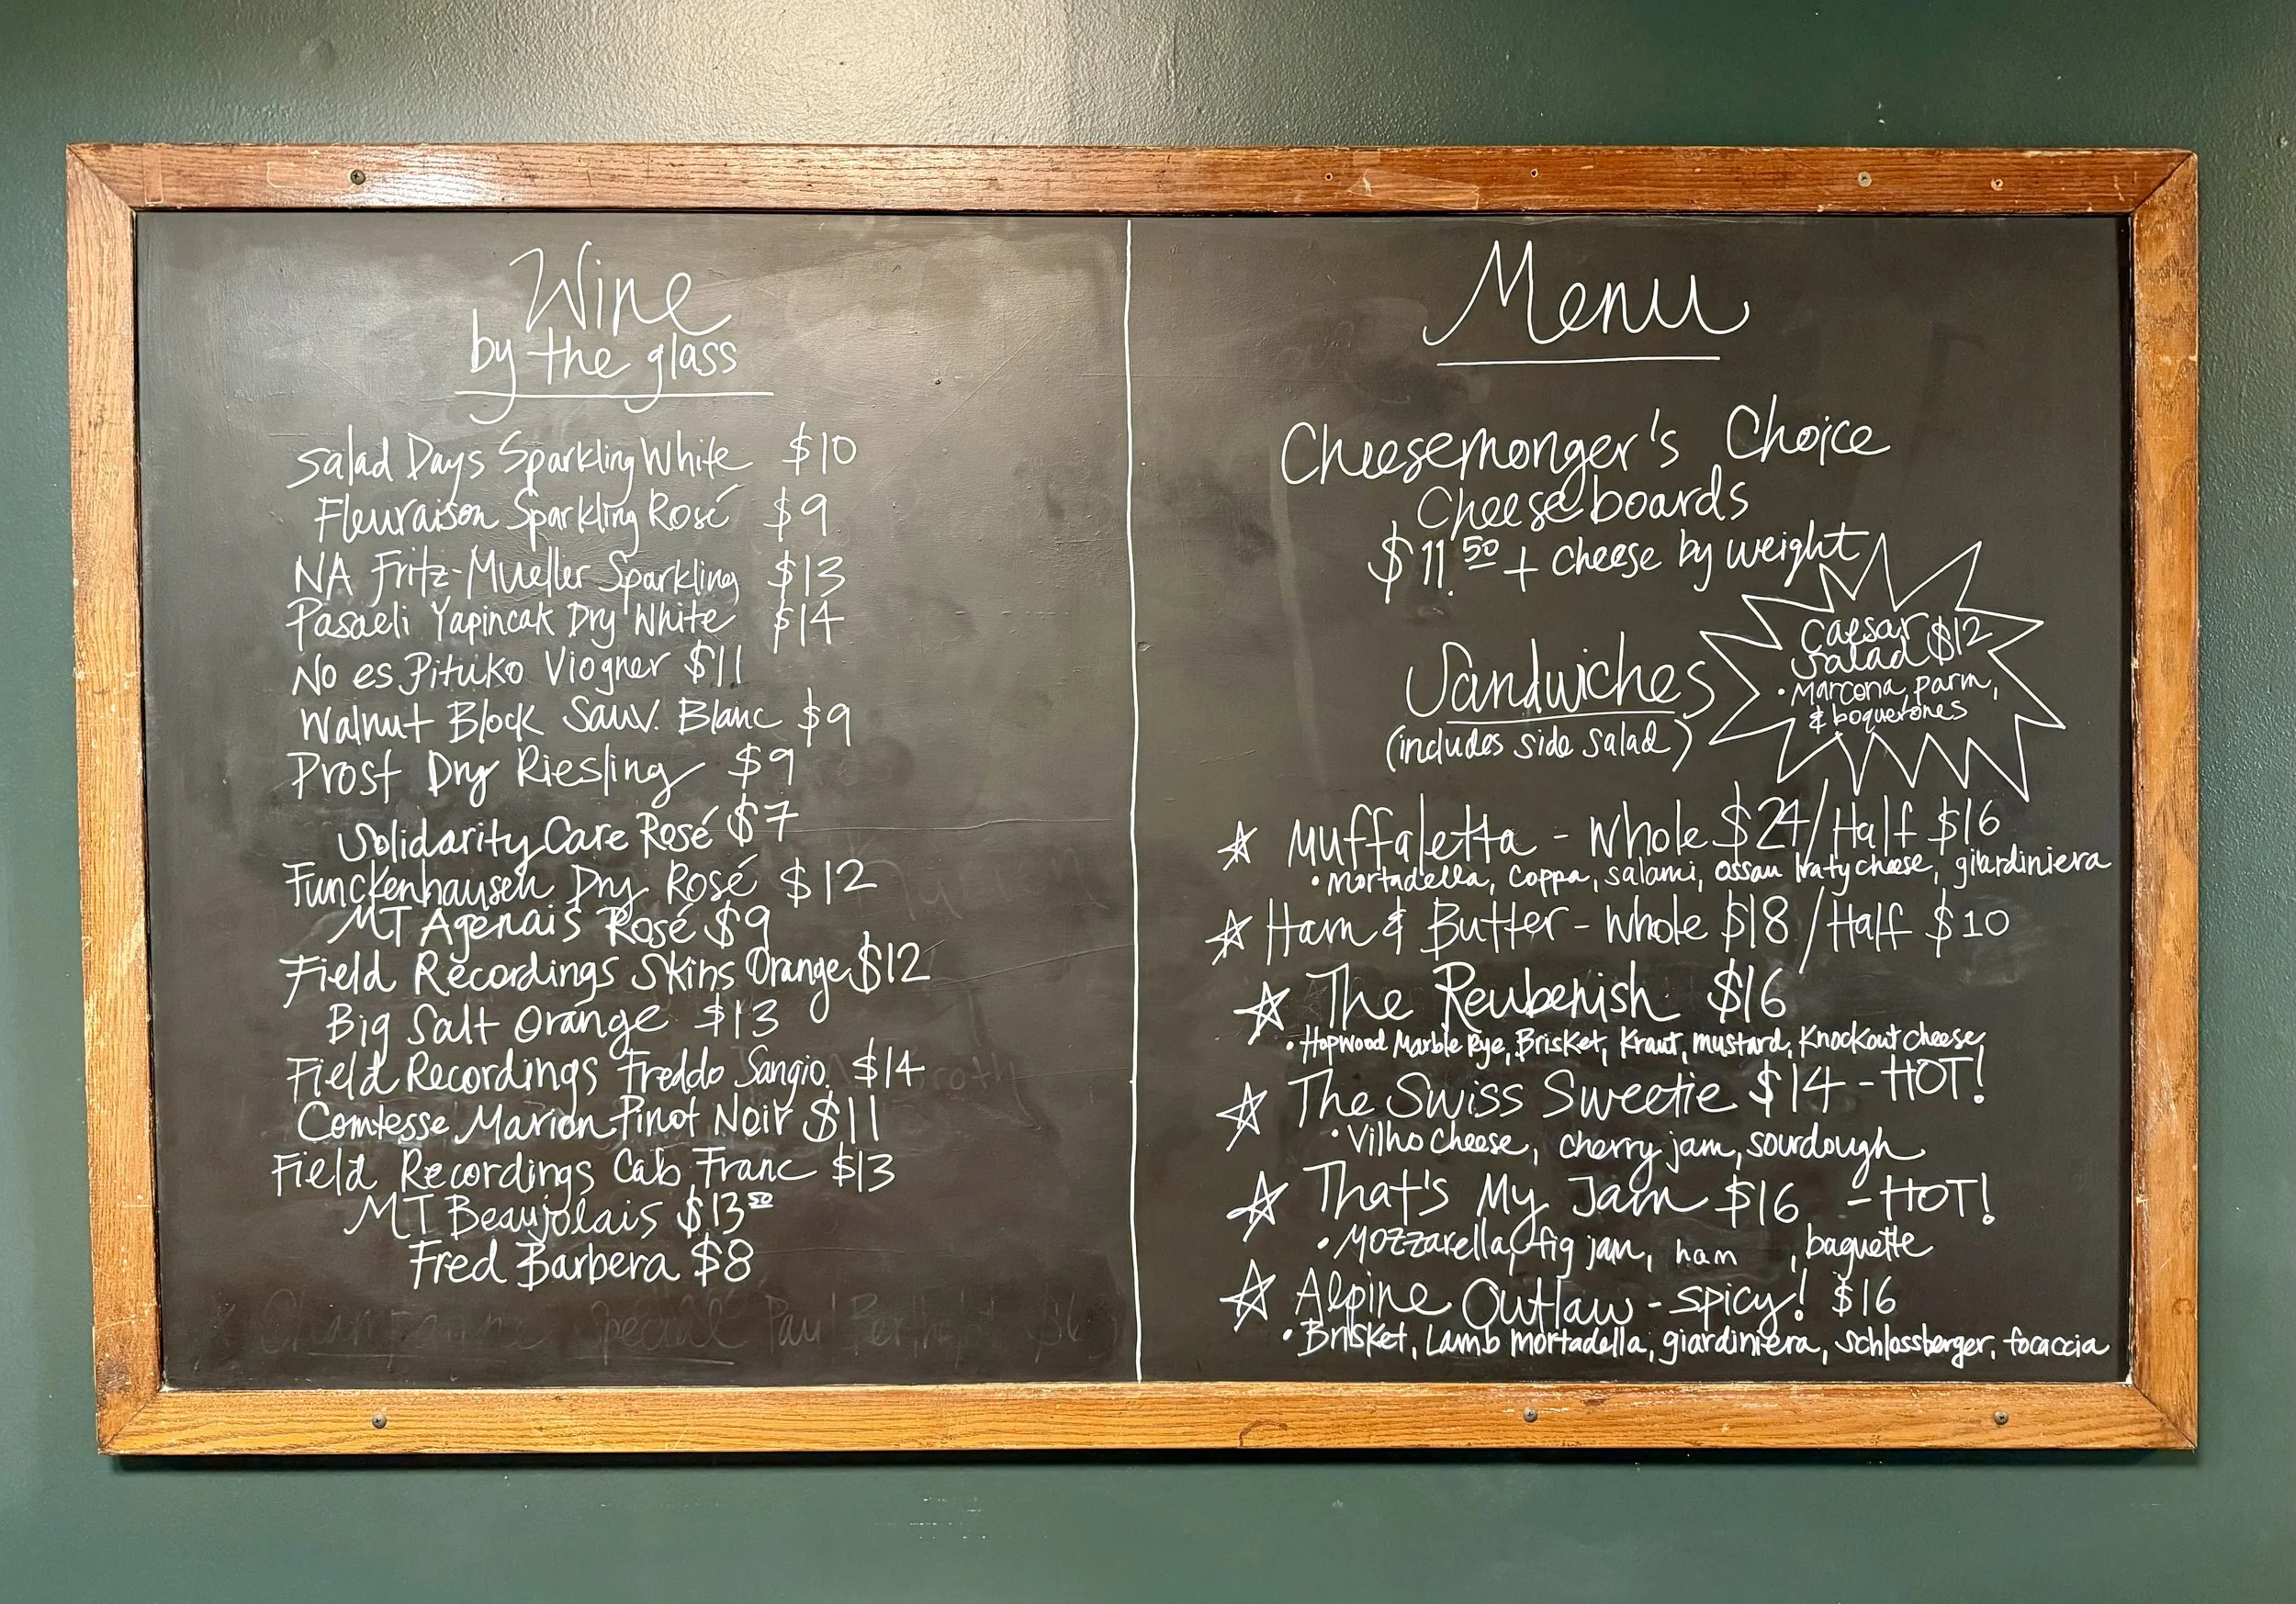 Wine
by the glass
Salad Days Sparkling White $10
Fleuraison Sparkling Rosé $9
NA Fritz-Mueller Sparkling $13
Pasaeli Yapincak Dry White $14
No es Pituko Viogner $11
Walnut Block Sauv. Blanc $9
Prost Dry Riesling $9
Solidarity Care Rosé $7
Funckenhausen Dry Rosé $12
MT Agenais Rosé $9
Field Recordings Skins Orange $12
Big Salt Orange $13
Field Recordings Freddo Sangio. $14
Comtesse Marion Pinot Noir $11
Field Recordings Cab Franc $13
MT Beaujolais $13 50
Fred Barbera $8
Special Paul
Menu
Cheesemonger's Choice
Cheese boards
$11.50 + cheese by weight
Caesar $12
Salad
• Marcona, parm,
& boquerones
Sandwiches
(includes side salad)
☆ Muffaletta - Whole $24/Half $16
• Mortadella, coppa, salami, ossau Iraty cheese, giardiniera
☆ Ham & Butter - Whole $18/Half $10
☆ The Reubenish $16
• Hopwood Marble Rye, Brisket, Kraut, mustard, Knockout cheese
☆ The Swiss Sweetie $14 - HOT!
• Vilho Cheese, cherry jam, sourdough
☆ That's My Jam $16 - HOT!
• Mozzarella, fig jam, ham, baguette
☆ Alpine Outlaw - spicy! $16
• Brisket, Lamb mortadella, giardiniera, schlossberger, focaccia